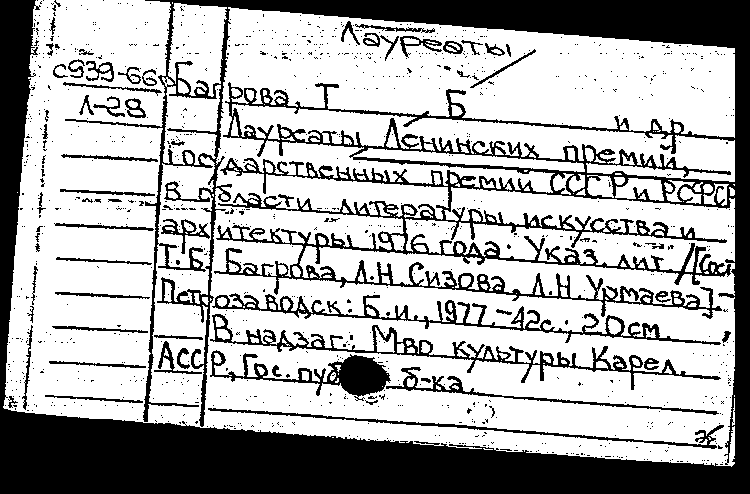 Лауреаты
с939-66
Л-28
Багрова, Т Б и др.
Лауреаты Ленинских премий,
Государственных премий СССР и РСФСР
в области литературы, искусства и
архитектуры 1976 года: Указ. лит. / [Сост.
Т.Б. Багрова, Л.Н. Сизова, Л.Н. Урмаева] -
Петрозаводск: Б.и., 1977.-42с.; 20см.
В надзаг.: М-во культуры Карел.
АССР, Гос. пуб б-ка.